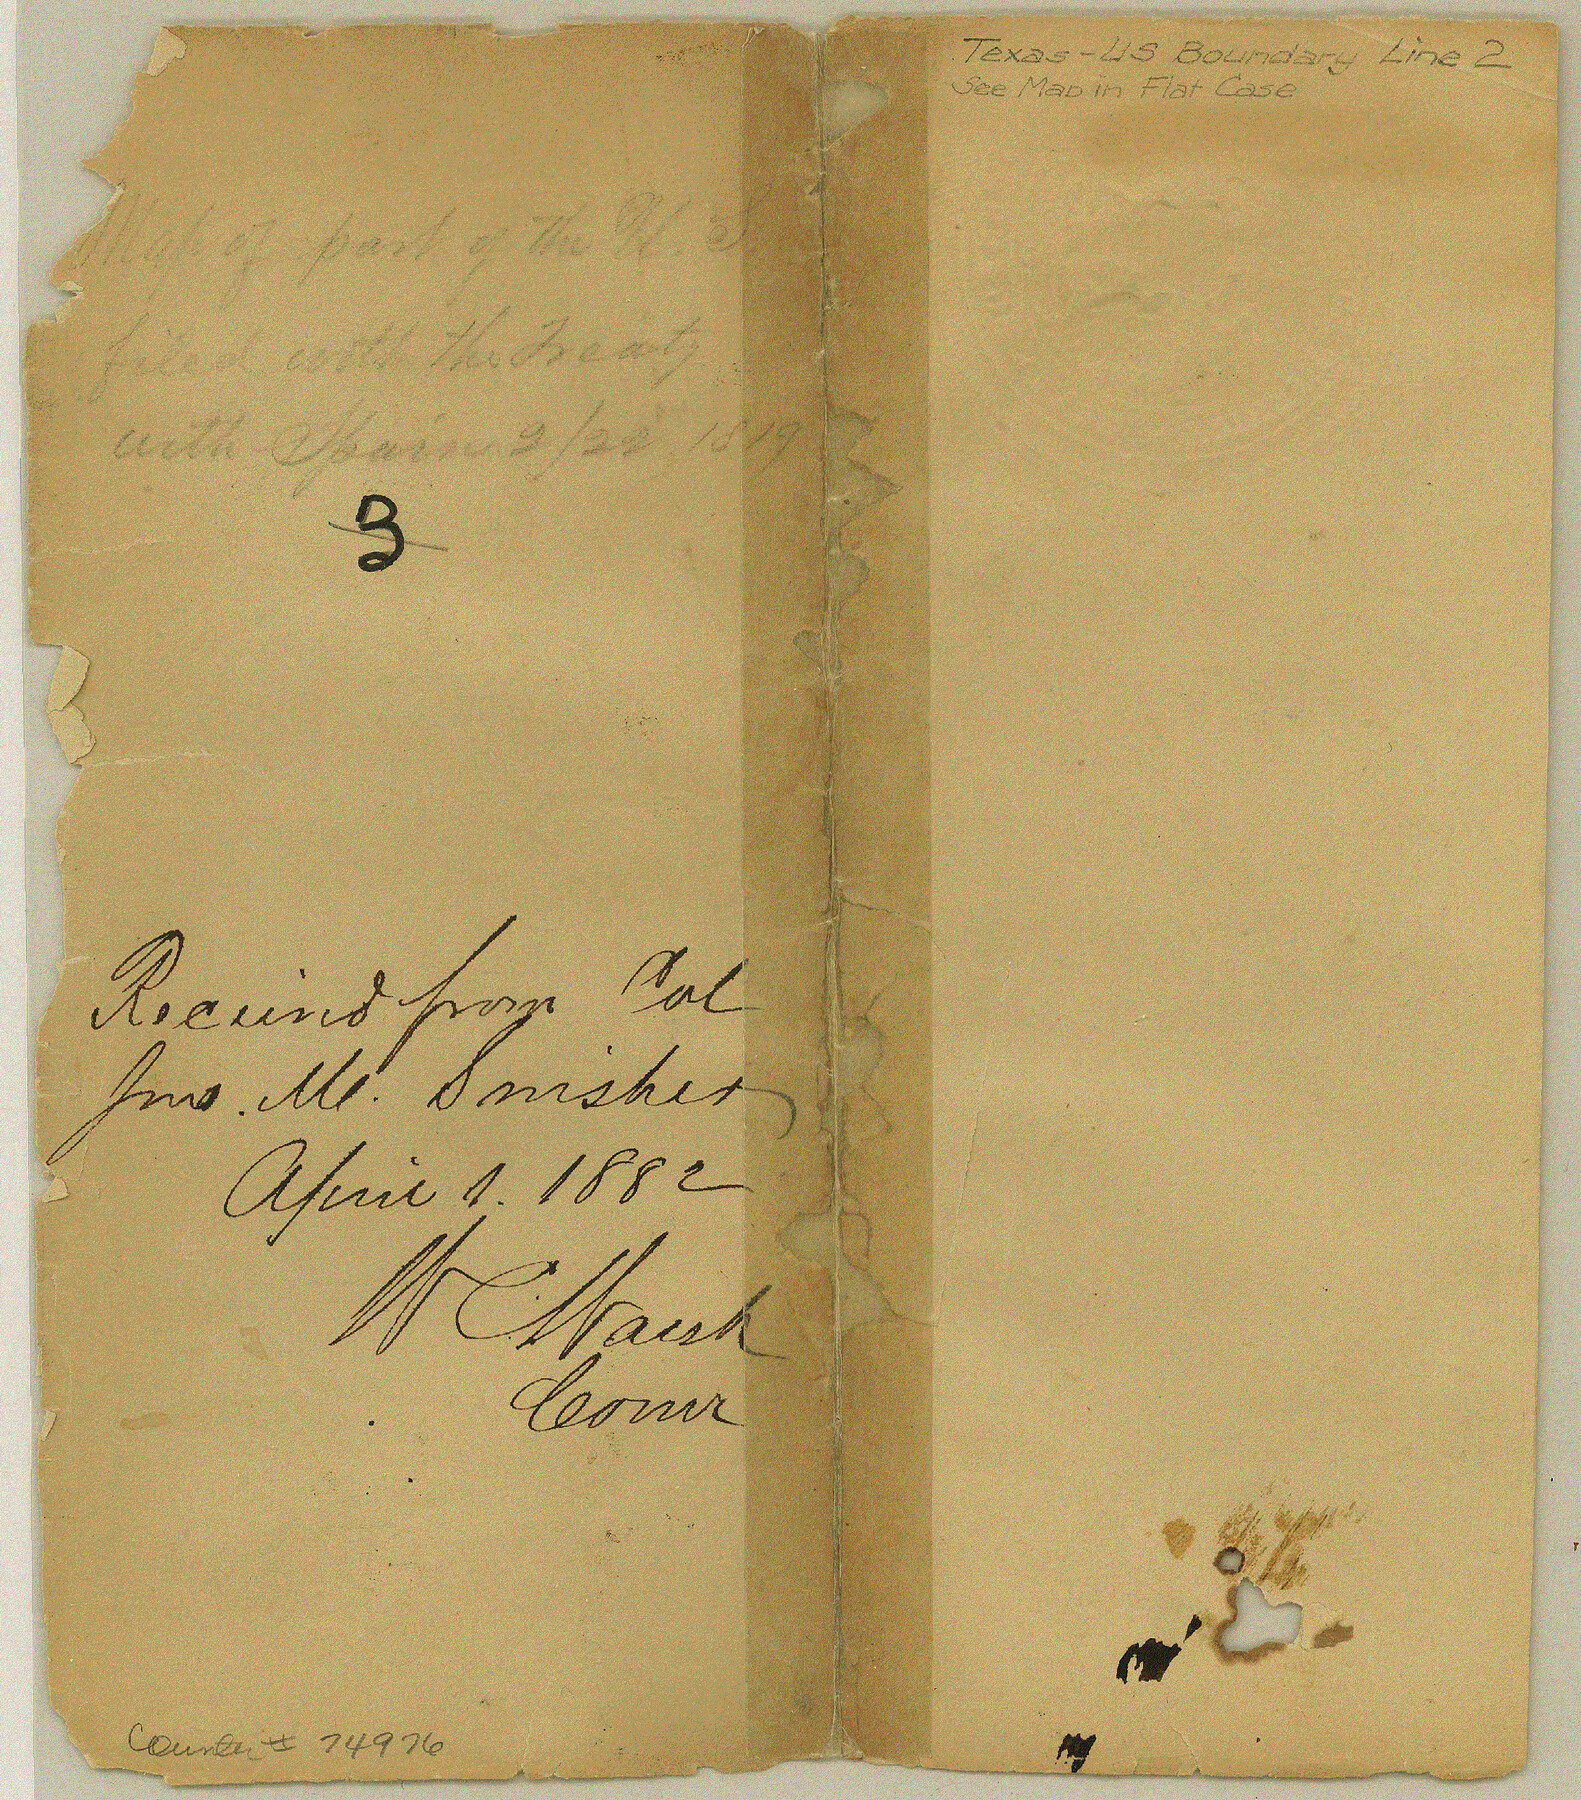 Map of part of the U. S
filed with the Treaty
with Spain 2/22 1819
3
Received from Col
Jno. M. Swisher
April 1. 1882
W C Walsh
Comr
Counter # 74976
Texas-US Boundary Line 2
See Map in Flat Case